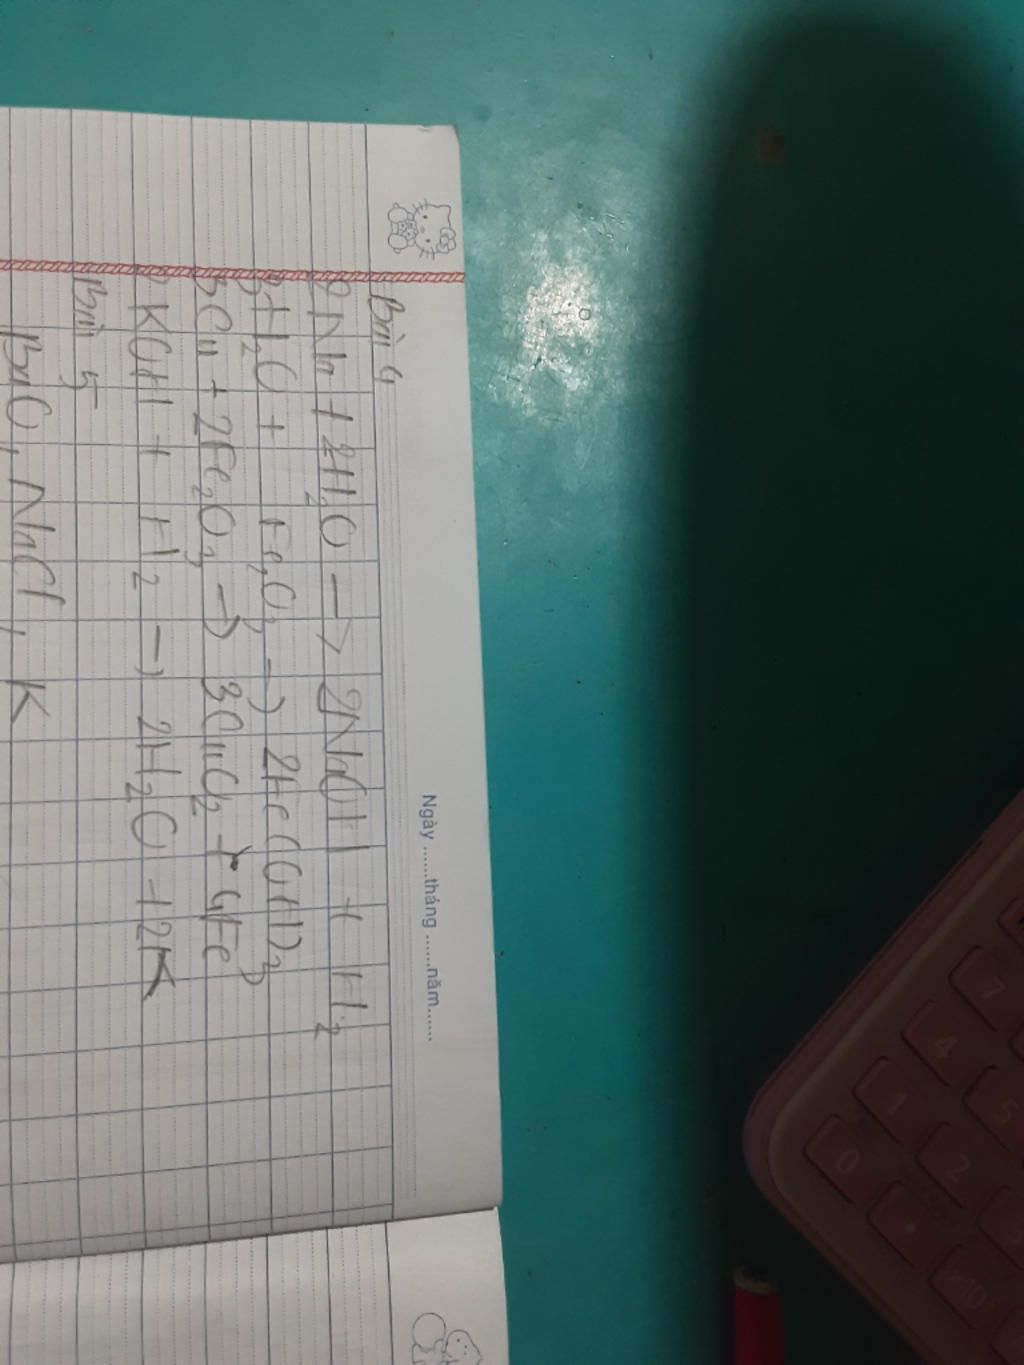 Ngày ......tháng ......năm......
Bài 4
2Na + 2H2O -> 2NaOH + H2
3H2O + Fe2O3 -> 2Fe(OH)3
3Cu + 2Fe2O3 -> 3CuO2 + 4Fe
2KOH + H2 -> 2H2O + 2K
Bài 5
BaO, NaCl, K
7
4
5
1
2
3
0
•
×10